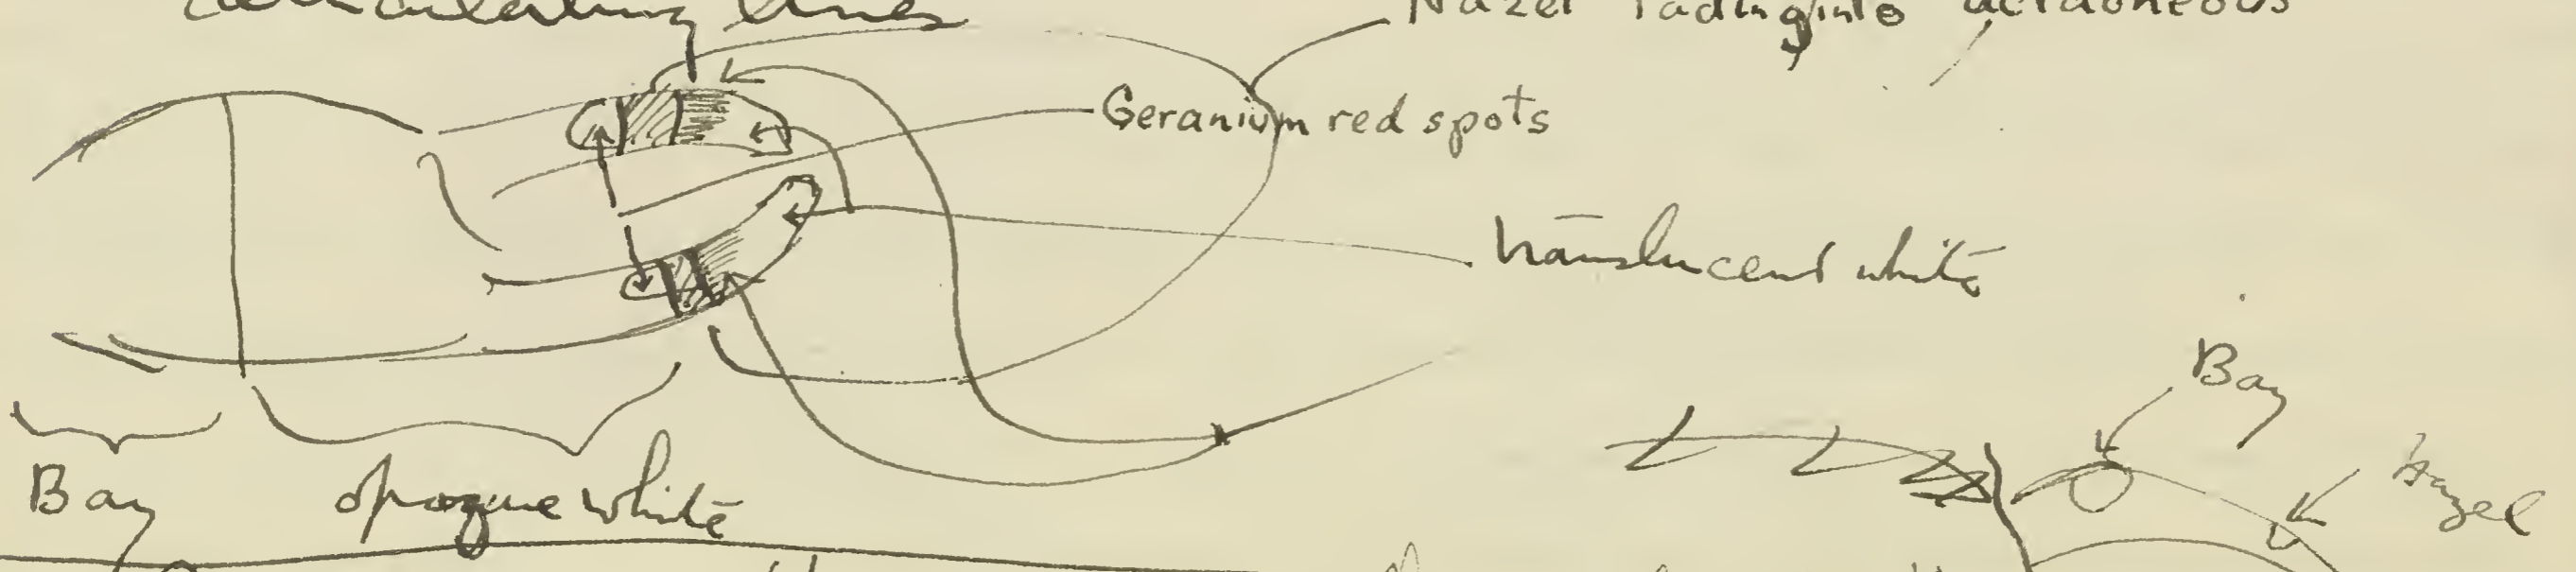 lines
Hazel fading into
Geranium red spots
translucent white
Bay
Hazel
Bay opaque white